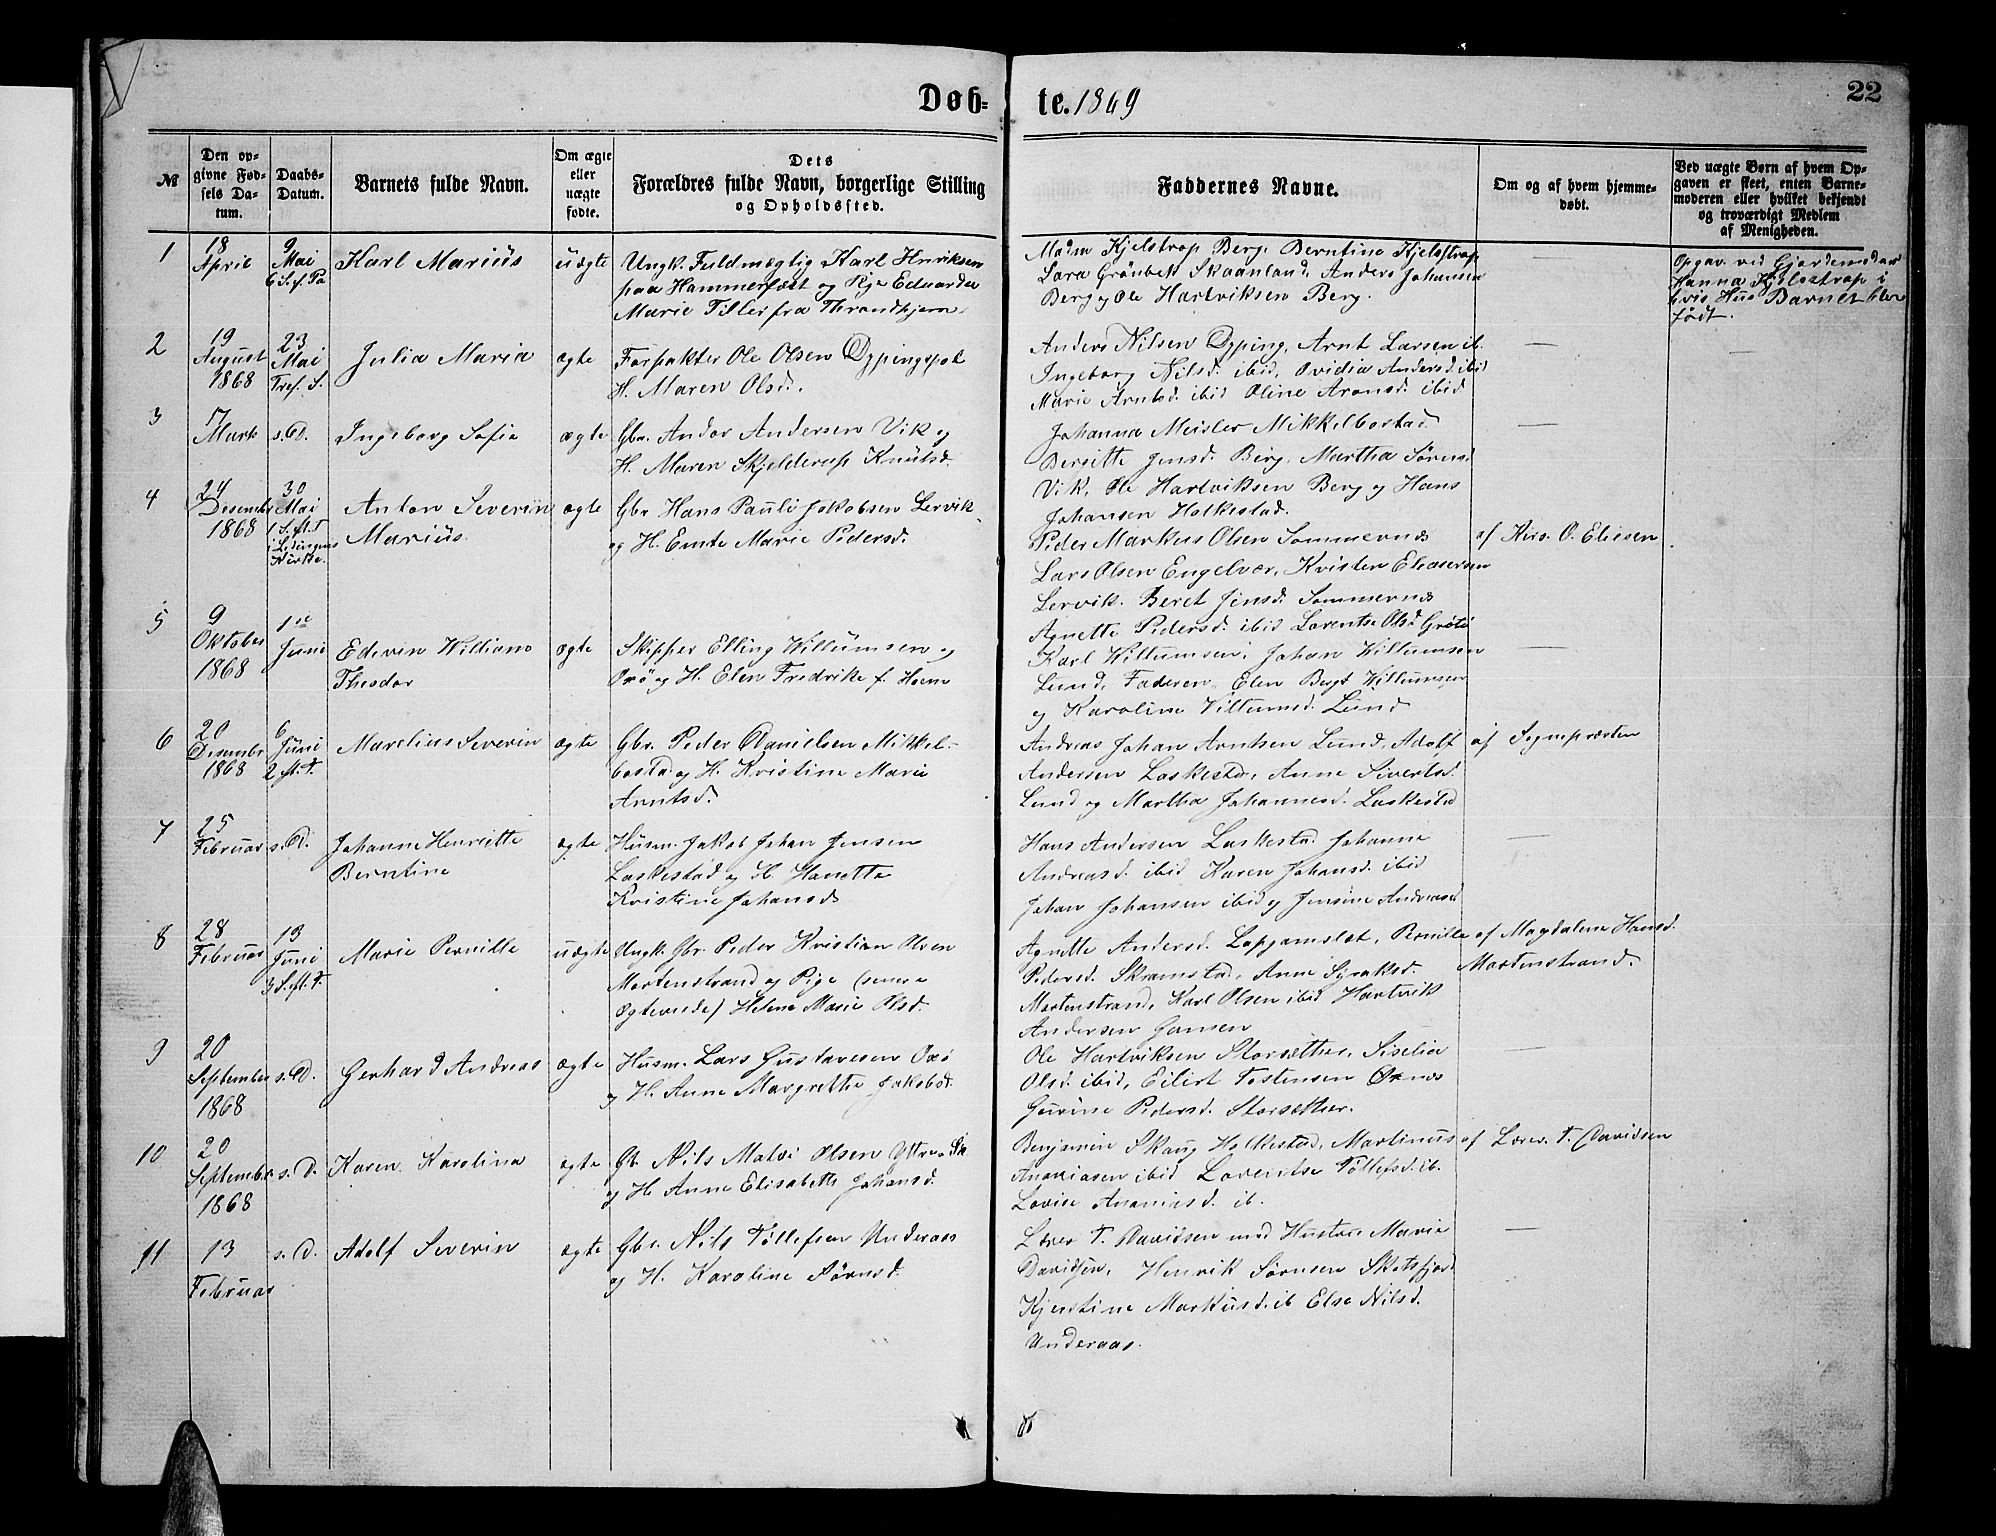 Døb=
te. 1869
22
№
Den op-
givne Fød-
sels Da-
tum.
Daabs-
Datum.
Barnets fulde Navn.
Om ægte
eller
uægte
fødte.
Dets
Forældres fulde Navn, borgerlige Stilling
og Opholdssted.
Faddernes Navne.
Om og af hvem hjemme-
døbt.
Ved uægte Børn af hvem Op-
gaven er skeet, enten Barne-
moderen eller hvilket bekjendt
og troværdigt Medlem
af Menigheden.
1
18
April
9
Mai
6 S. f. Pa
Karl Marius
uægte
Ungk. Fuldmægtig Karl Henriksen
paa Hammerfæst og Pige Edvarda
Marie Tiller fra Throndhjem
Madm Kjelstrup Berg. Berntine Kjelstrup
Sara Grønbek Skaanland, Anders Johansen
Berg og Ole Hartviksen Berg.
—
Opgav. ved Gjordemoder
Hanna Kjelstrup i
hvis Hus Barnet blev
født.
2
19
August
1868
23
Mai
Tref. S.
Julia Maria
ægte
Forpakter Ole Olsen Dypingspol
H. Maren Olsd.
Anders Nilsen Dyping, Arnt Larsen ib.
Ingeborg Nilsd. ibid, Ovidia Andersd. ibid
Marie Arntsd. ibid Oline Aronsd. ibid
—
—
3
17
Marts
s. D.
Ingeborg Sofie
ægte
Gbr. Andor Andersen Vik og
H. Maren Skjelderup Knutsd.
Johanna Meisler Mikkelbostad
Bergitte Jensd. Berg, Martha Sørensd.
Vik, Ole Hartviksen Berg og Hans
Johansen Holkestad.
—
4
24
Desember
1868
30
Mai
1 S. eft. T
i Lødingens
Kirke.
Anton Severin
Marius
ægte
Gbr Hans Pauli Jakobsen Lervik
og H. Emte Marie Pedersd.
Peder Markus Olsen Sommernes
Lars Olsen Engelvær, Kristen Eliasersen
Lervik. Beret Jensd. Sommernes
Agnette Pedersd. ibid Lorentse Olsd Grøtø
af Kirs. O. Eliesen
5
9
Oktober
1868
1ste
Juni
Edevin Williano
Theodor
ægte
Skipper Elling Willumsen og
Oxø og H. Elen Fredrike f. Horn
Karl Willumsen, Johan Willumsen
Lund, Faderen, Elen Bergt Willumsen
og Karoline Villumsd. Lund
—
6
20
Desember
1868
6
Juni
2 eft. T.
Marelius Severin
ægte
Gbr. Peder Danielsen Mikkel-
bostad og H. Kristine Marie
Arntsd.
Andreas Johan Arntsen Lund, Adolf
Andersen Laskestad, Anne Sivertsd.
Lund og Martha Johannesd. Laskestad
af Sognepræsten
7
25
Februar
s. D.
Johanne Henriette
Berntine
ægte
Husm. Jakob Johan Jensen
Laskestad og H. Hanette
Kristine Johansd
Hans Andersen Laskestad Johanne
Andreasd. ibid Karen Johansd. ibid
Johan Johansen ibid og Jensine Andreasd
—
8
28
Februar
13
Juni
3 S. eft. T.
Marie Pernille
uægte
Ungk. Gbr. Peder Kristian Olsen
Mortenstrand og Pige (senere
Ægteviede) Helene Marie Olsd.
Agnette Andersd. Lapjamslet, Pernille
Pedersd. Skramstad, Anne Syraksd.
Mortenstrand, Karl Olsen ibid Hartvik
Andersen Gansen
af Magdalene Hansd.
Mortenstrand.
9
20
September
1868
s. D.
Gerhard Andreas
ægte
Husm. Lars Gustavesen Oxø
og H. Anne Margrethe Jakobsd.
Ole Hartviksen Storsæther, Siselia
Olsd. ibid, Eilert Tostensen Øxnes
Gurine Pedersd. Storsæther.
—
10
20
September
1868
s. D.
Karen Karolina
ægte
Gb. Nils Matvi Olsen Yttre
og H. Anne Elisabeth Johansd.
Benjamin Skaug Holkestad, Martinus
Ananiasen ibid Lorentse Tollefsd. ib.
Lovise Ananiasd. ib.
af Lærer T. Davidsen
11
13
Februar
s. D.
Adolf Severin
ægte
Gbr. Nils Tollefsen Underaas
og H. Karoline Sørnsd.
Lærer T. Davidsen med Hustru Marie
Davidsen, Henrik Sørnsen Skotsfjord
Kjerstine Markusd. ib Else Nilsd.
Underaas.
—